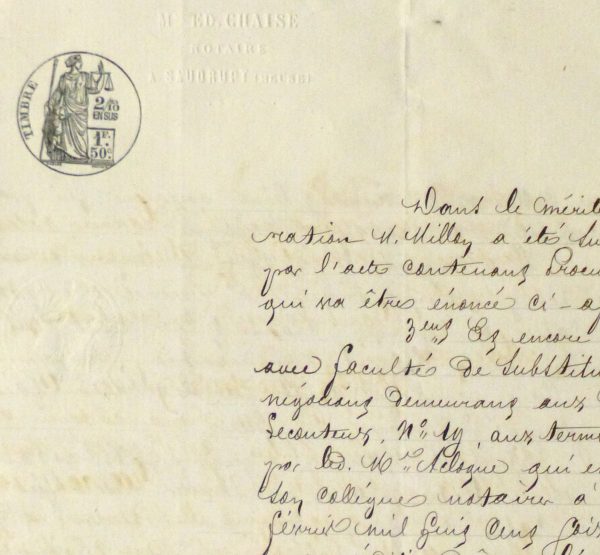 Mᵉ ED. CHAISE
NOTAIRE
A SEUDRUPT (MEUSE)
TIMBRE
2/10
EN SUS
1F.
50c.
Dans le mérite
ration M. Millon a été Su
par l'acte contenant Procu
qui va être énoncé ci-a
2ent Et encore
avec faculté de Substitu
négociant demeurant aux
Lecouteux, No 19, aux term
par led. Me qui en
son collègue notaire à
février mil huit cent soix